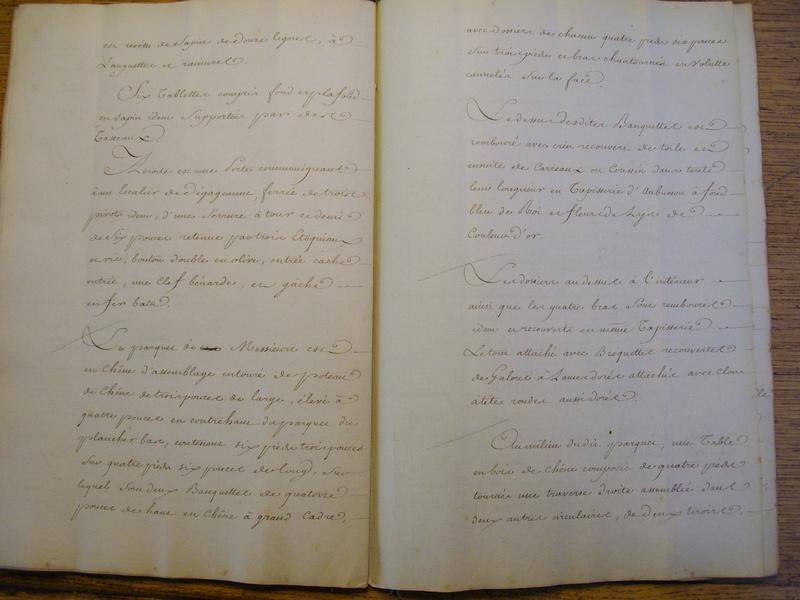 est revêtu de Sapin de douze lignes, à
Languettes et rainures.
Six Tablettes compris fond et plafond
en Sapin idem Supportées par des
Tasseaux.
A droite est une Porte communiquant
à un escalier de dégagement, ferrée de trois
pivots idem, d'une Serrure à tour et demie
de Six pouces retenue par trois Etoquiaux
à vis, bouton double en olive, entrée cache
entrée, une Clef bénarde, en gâche
en fer batu.
Le parquet de Messieurs est
en Chêne d'assemblage entouré de poteau
de Chêne de trois pouces de large, élevé à
quatre pouces en contrehaut du parquet du
plancher bas, contenant six pieds trois pouces
Sur quatre pieds six pouces de long, Sur
lequel Sont deux Banquettes de quatorze
pouces de haut en Chêne à grand Cadre,
avec dossiers de chacun quatre pieds six pouces
Sur trois pieds et bras chantournés en Volutte
cannelés Sur la face.
Le dessus desdites Banquettes est
rembouré avec crin recouvert de toile et
ensuite de Carreaux ou Coussin dans toute
leur longueur en Tapisserie d'Aubusson à fond
bleu de Roi et fleurs de Lys de
Couleur d'or.
Les dossiers au dessus à l'intérieur
ainsi que les quatre bras Sont rembourés
idem et recouverts en même Tapisserie
Le tout attaché avec Broquettes recouvertes
de Galons à Lames dorées attachés avec clous
à têtes rondes aussi dorés.
Au milieu dudit parquet, une Table
en bois de chêne composée de quatre pieds
tournés une traverse droite assemblée dans
deux autres circulaires, de deux tiroirs,